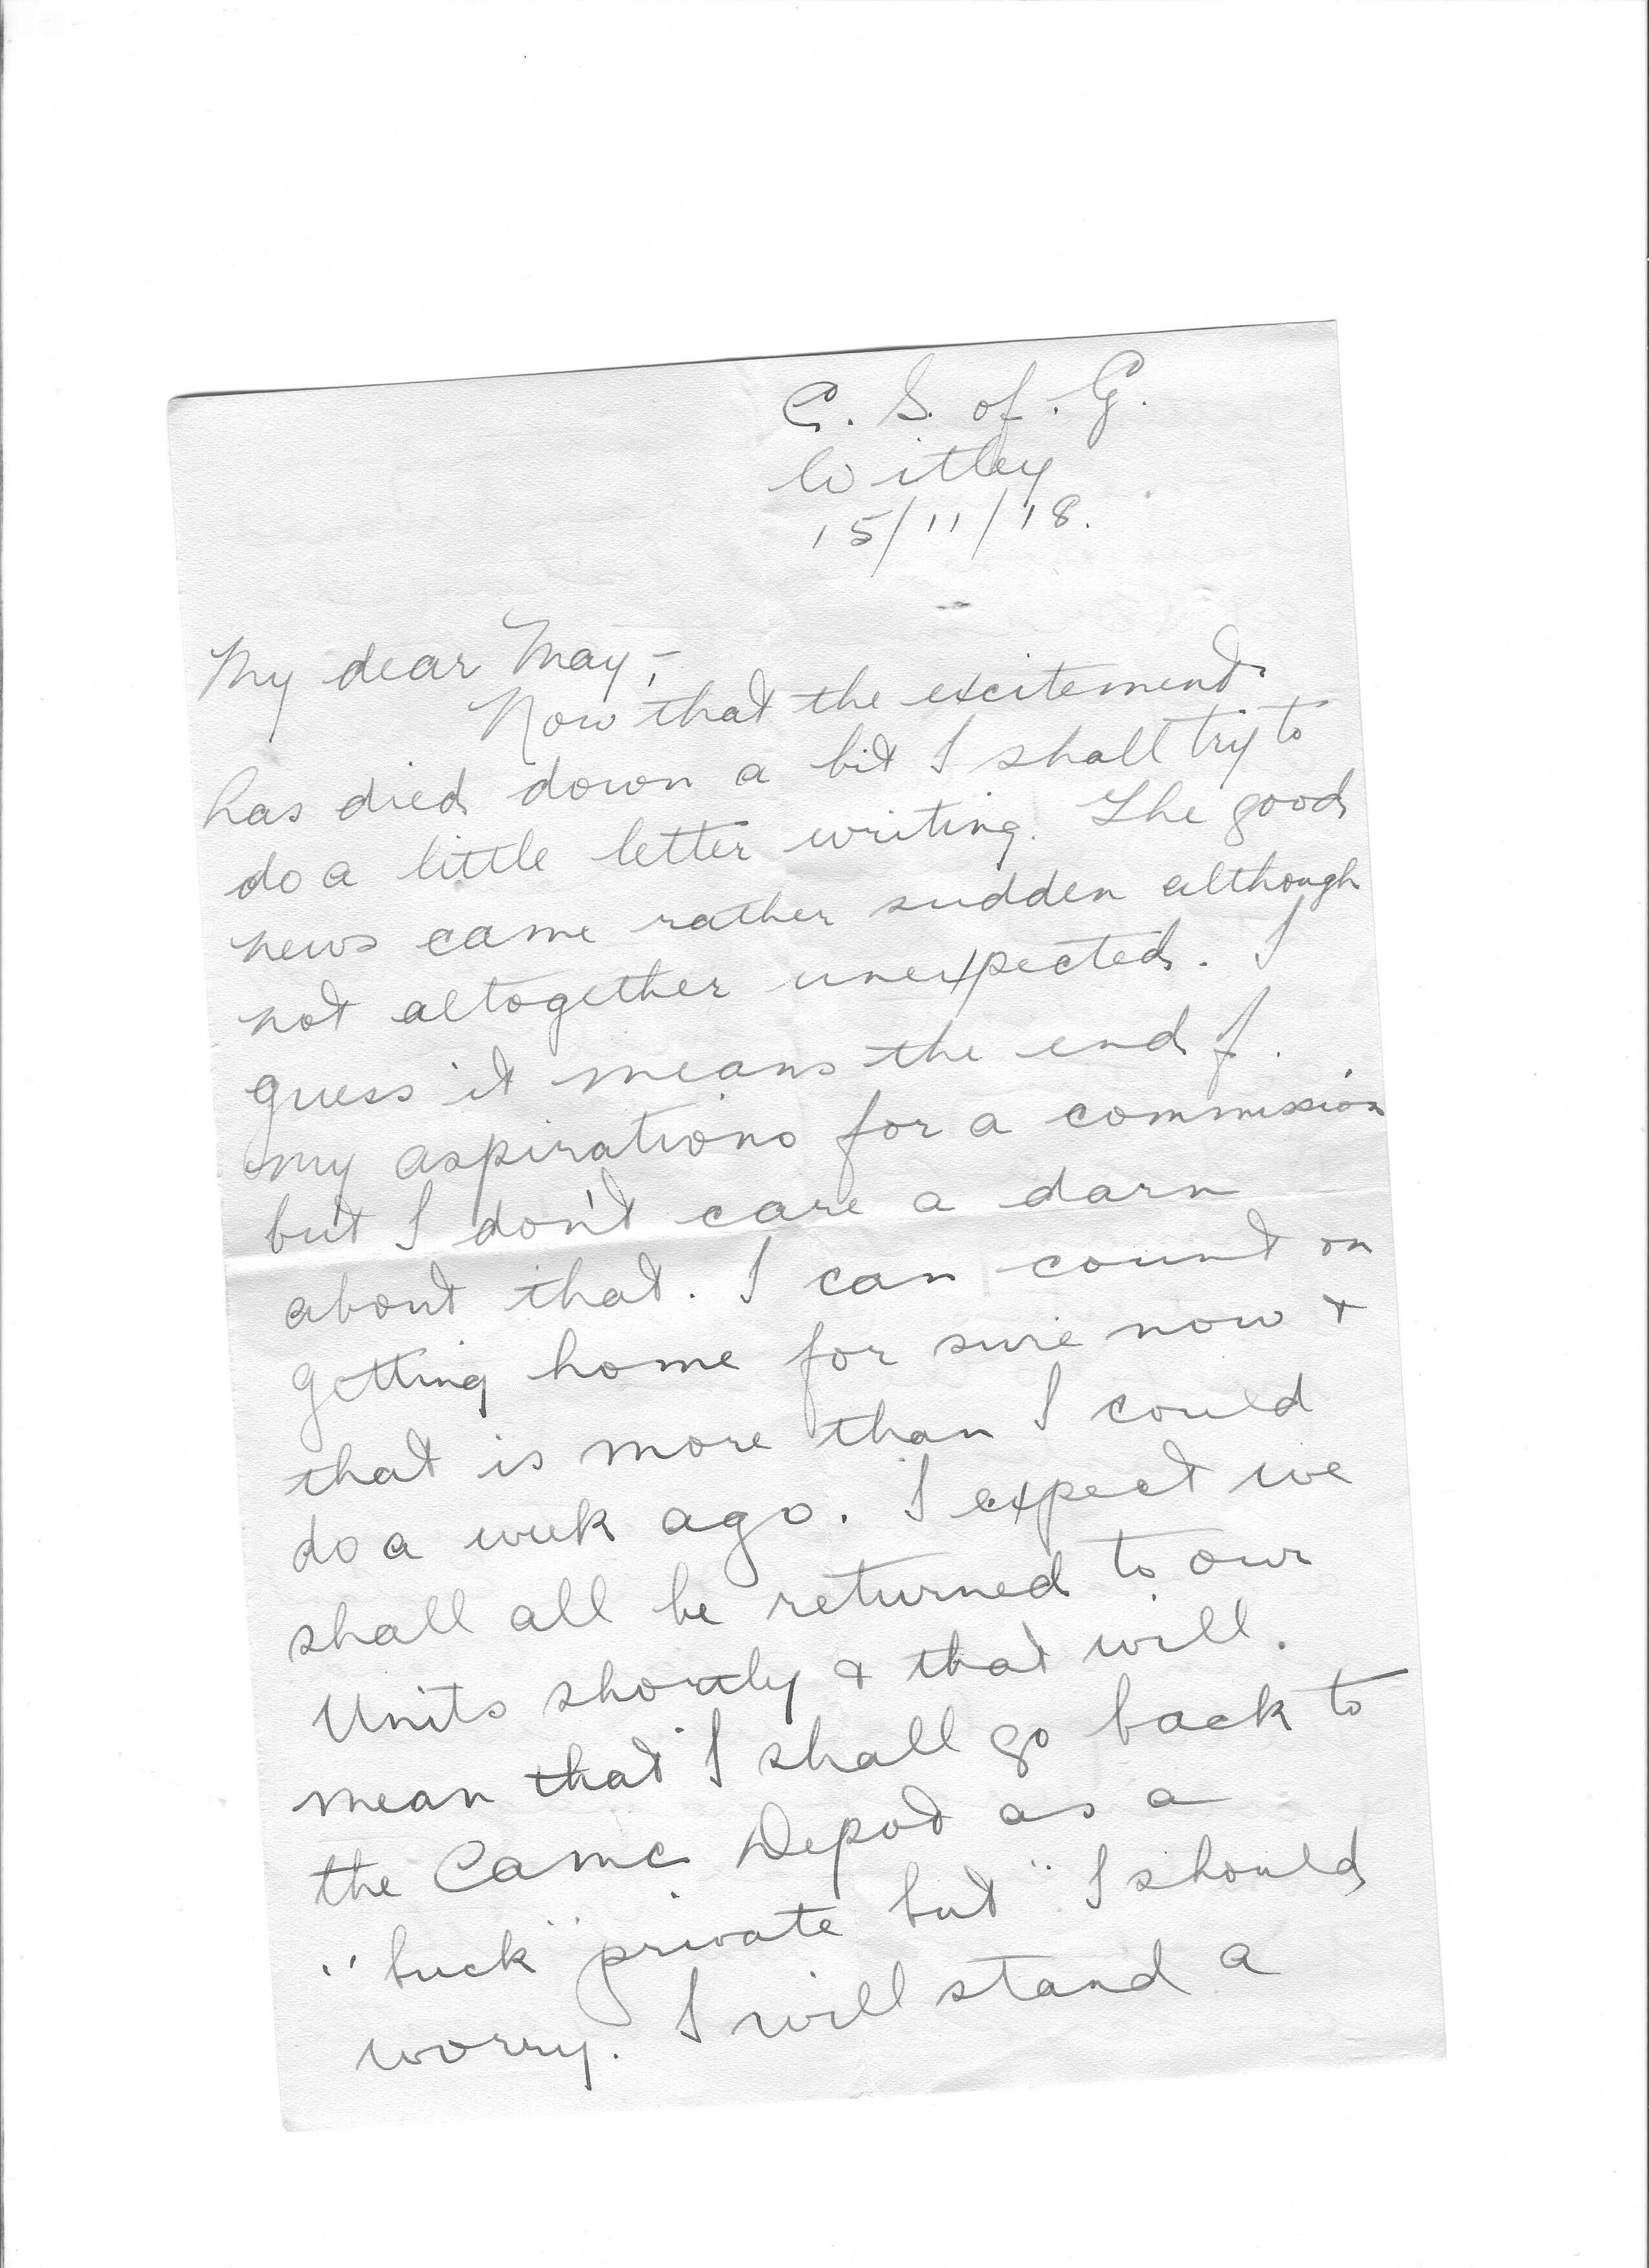 C. S. of. G.
Witley
15/11/18.
My dear May,-
Now that the excitement
has died down a bit I shall try to
do a little letter writing. The good
news came rather sudden although
not altogether unexpected. I
guess it means the end of.
my aspirations for a commission
but I don't care a darn
about that. I can count on
getting home for sure now &
that is more than I could
do a week ago. I expect we
shall all be returned to our
Units shortly & that will.
mean that I shall go back to
the Camc Depot as a
"buck" private but "I should
worry. I will stand a